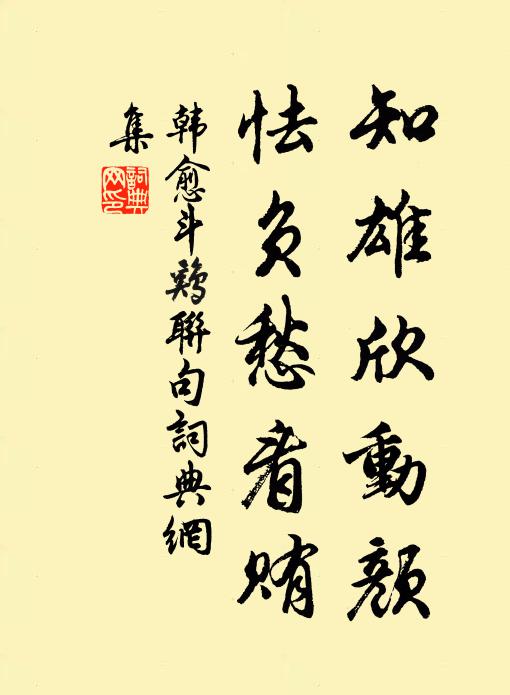 知雄欣動顏
怯負愁看賄
韩愈斗鷄聯句詞典網
集
詞典
网印